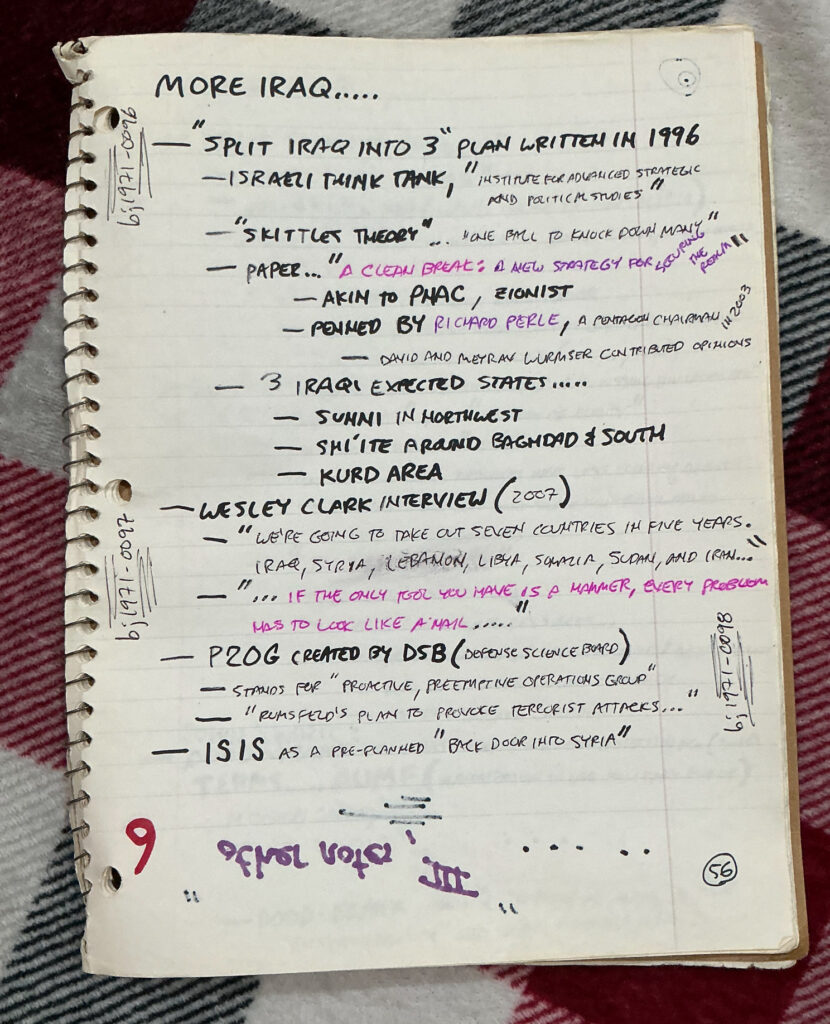 MORE IRAQ.....
— "SPLIT IRAQ INTO 3" PLAN WRITTEN IN 1996
— ISRAELI THINK TANK, "INSTITUTE FOR ADVANCED STRATEGIC
AND POLITICAL STUDIES"
— "SKITTLES THEORY"... "ONE BALL TO KNOCK DOWN MANY"
— PAPER... "A CLEAN BREAK: A NEW STRATEGY FOR SECURING THE REALM"
— AKIN TO PNAC, ZIONIST
— PENNED BY RICHARD PERLE, A PENTAGON CHAIRMAN IN 2003
— DAVID AND MEYRAV WURMSER CONTRIBUTED OPINIONS
— 3 IRAQI EXPECTED STATES.....
— SUNNI IN NORTHWEST
— SHI'ITE AROUND BAGHDAD & SOUTH
— KURD AREA
— WESLEY CLARK INTERVIEW (2007)
— "WE'RE GOING TO TAKE OUT SEVEN COUNTRIES IN FIVE YEARS.
IRAQ, SYRIA, LEBANON, LIBYA, SOMALIA, SUDAN, AND IRAN..."
— "... IF THE ONLY TOOL YOU HAVE IS A HAMMER, EVERY PROBLEM
HAS TO LOOK LIKE A NAIL....."
— P2OG CREATED BY DSB (DEFENSE SCIENCE BOARD)
— STANDS FOR "PROACTIVE, PREEMPTIVE OPERATIONS GROUP"
— "RUMSFELD'S PLAN TO PROVOKE TERRORIST ATTACKS..."
— ISIS AS A PRE-PLANNED "BACK DOOR INTO SYRIA"
bj1971-0096
bj1971-0097
bj1971-0098
9
III
56